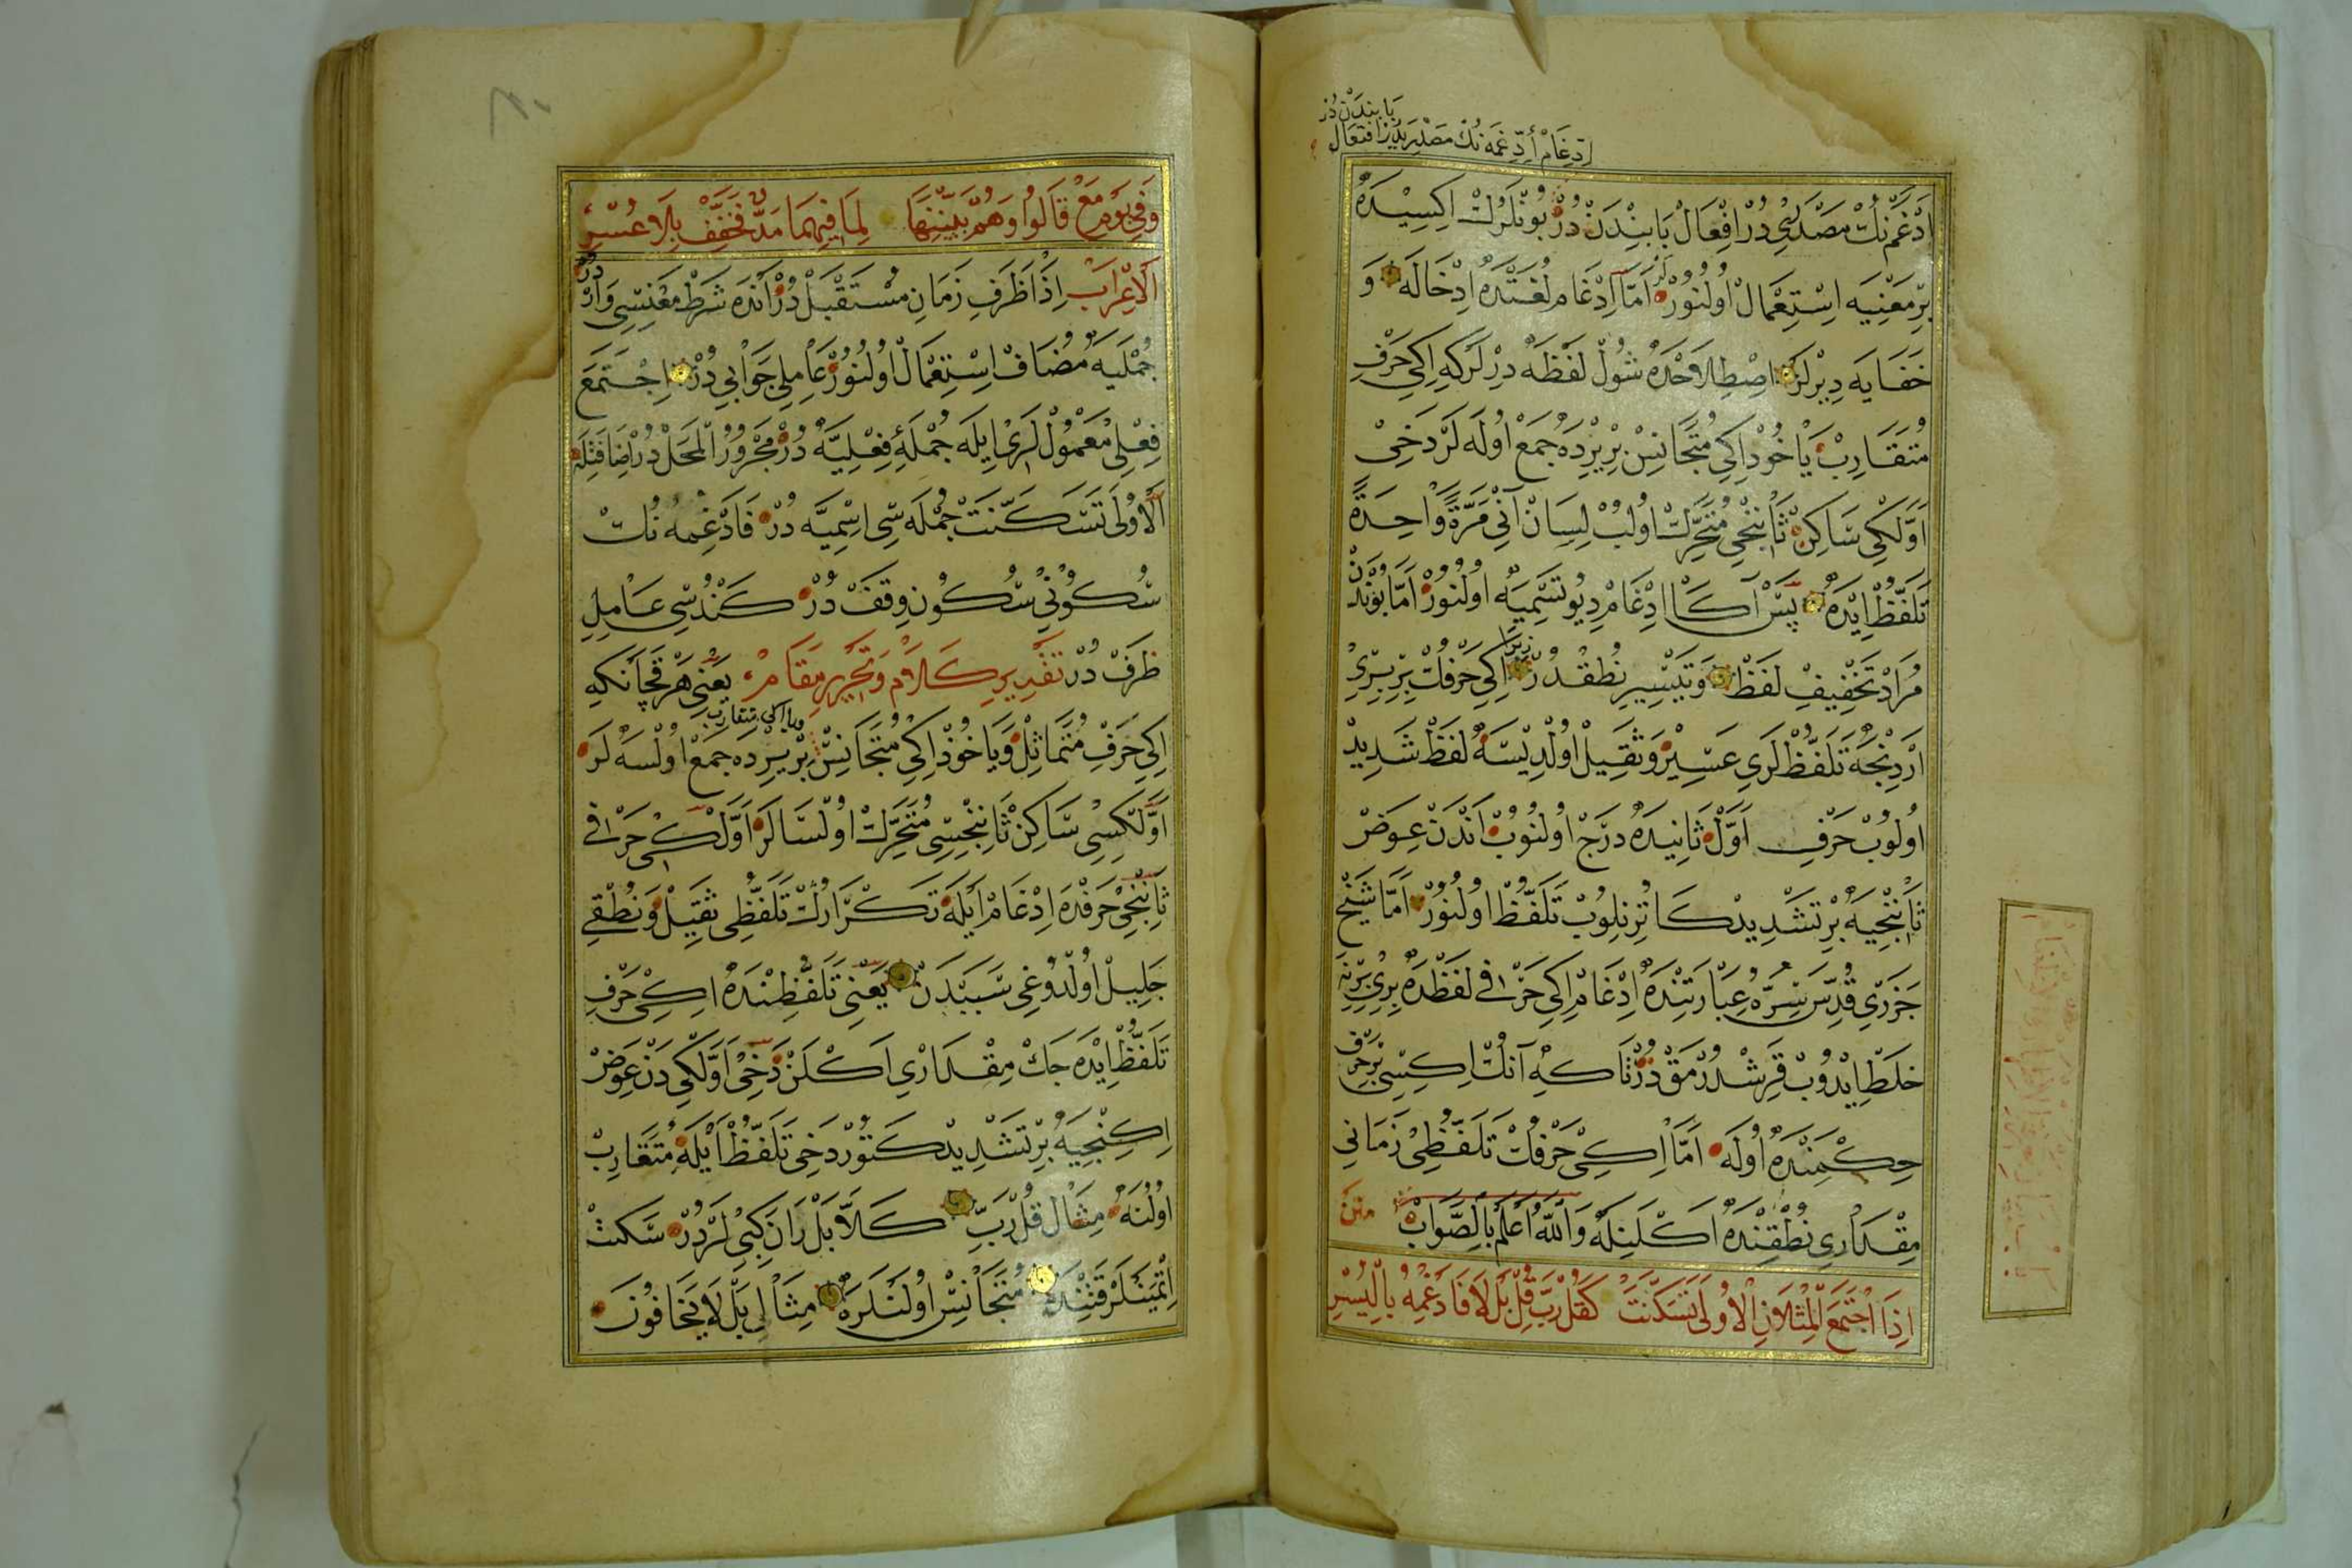 بابندن در
ادغام ادغمه نك مصدريدر افتعال
ادغم نك مصدري در افعال بابندن در بونلرك اكيسيده
بر معنيه استعمال اولنور اما ادغام لغتده ادخاله و
خفايه ديرلر اصطلاحده شول لفظه درلركه اكي حرف
متقارب ياخوذ اكي متجانس بر يرده جمع اوله لر دخي
اولكي ساكن ثانينجي متحرك اولب لسان اني مرة واحدة
تلفظ ايده پس اكا ادغام ديو تسميه اولنور اما بوندن
مراد تخفيف لفظ و تيسير نطقدر زيرا اكي حرفك بر بري
اردنجه تلفظلري عسير و ثقيل اولديسه لفظ شديد
اولوب حرف اول ثانيده درج اولنوب اندن عوض
ثانينجيه بر تشديد كا تزنلوب تلفظ اولنور اما شيخ
جزري قدس سره عبارتنده ادغام اكي حرفي لفظده بري برينه
خلط ايدوب قرشدرمق در تا كه آنك اكيسي بر حرف
حكمنده اوله اما اكي حرفك تلفظي زماني
مقداري نطقنده اكلنله والله اعلم بالصواب متن
اذا اجتمع المثلان الاولى تسكنت كقل رب قل بل لا فادغمه باليسر
وفي يوم مع قالوا وهم بيننها لما فيهما مد فخفف بلا عسر
الاعراب اذا ظرف زمان مستقبل در انده شرط معنسي وار در
جمليه مضاف استعمال اولنور عاملي جوابي در اجتمع
فعلي معمول لري ايله جمله فعليه در مجرور المحل در اضافتله
الاولى تسكنت جمله سي اسميه در فادغمه نك
سكوني سكون وقف در كندسي عامل
ظرف در تقدير كلام و تحرير مقام يعني هر قچانكه
اكي حرف متماثل و ياخوذ اكي متجانس ويا اكي متقارب بر يرده جمع اولسه لر
اولكيسي ساكن ثانينجيسي متحرك اولسا لر اولكي حرفي
ثانينجي حرفده ادغام ايله تكرارك تلفظي ثقيل و نطقي
جليل اولدوغي سببدن يعني تلفظنده اكي حرف
تلفظ ايده جك مقداري اكلن دخي اولكي دن عوض
اكنجيه بر تشديد كتور دخي تلفظ ايله متقارب
اولنه مثال قل رب كلا بل ران كبي لردر سكت
اتمينلر قتنده متجانس اولنلره مثال بل لا يخافون